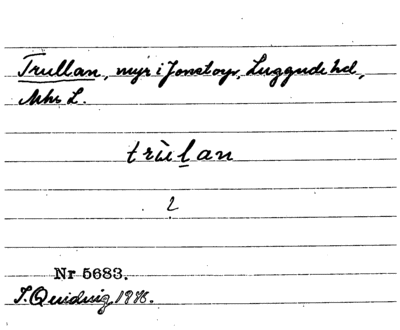 Trullan, myr i Jonstorp, Luggude hd,
Mhs L.
trùlan
2
Nr 5683.
J. Quidwig, 1936.